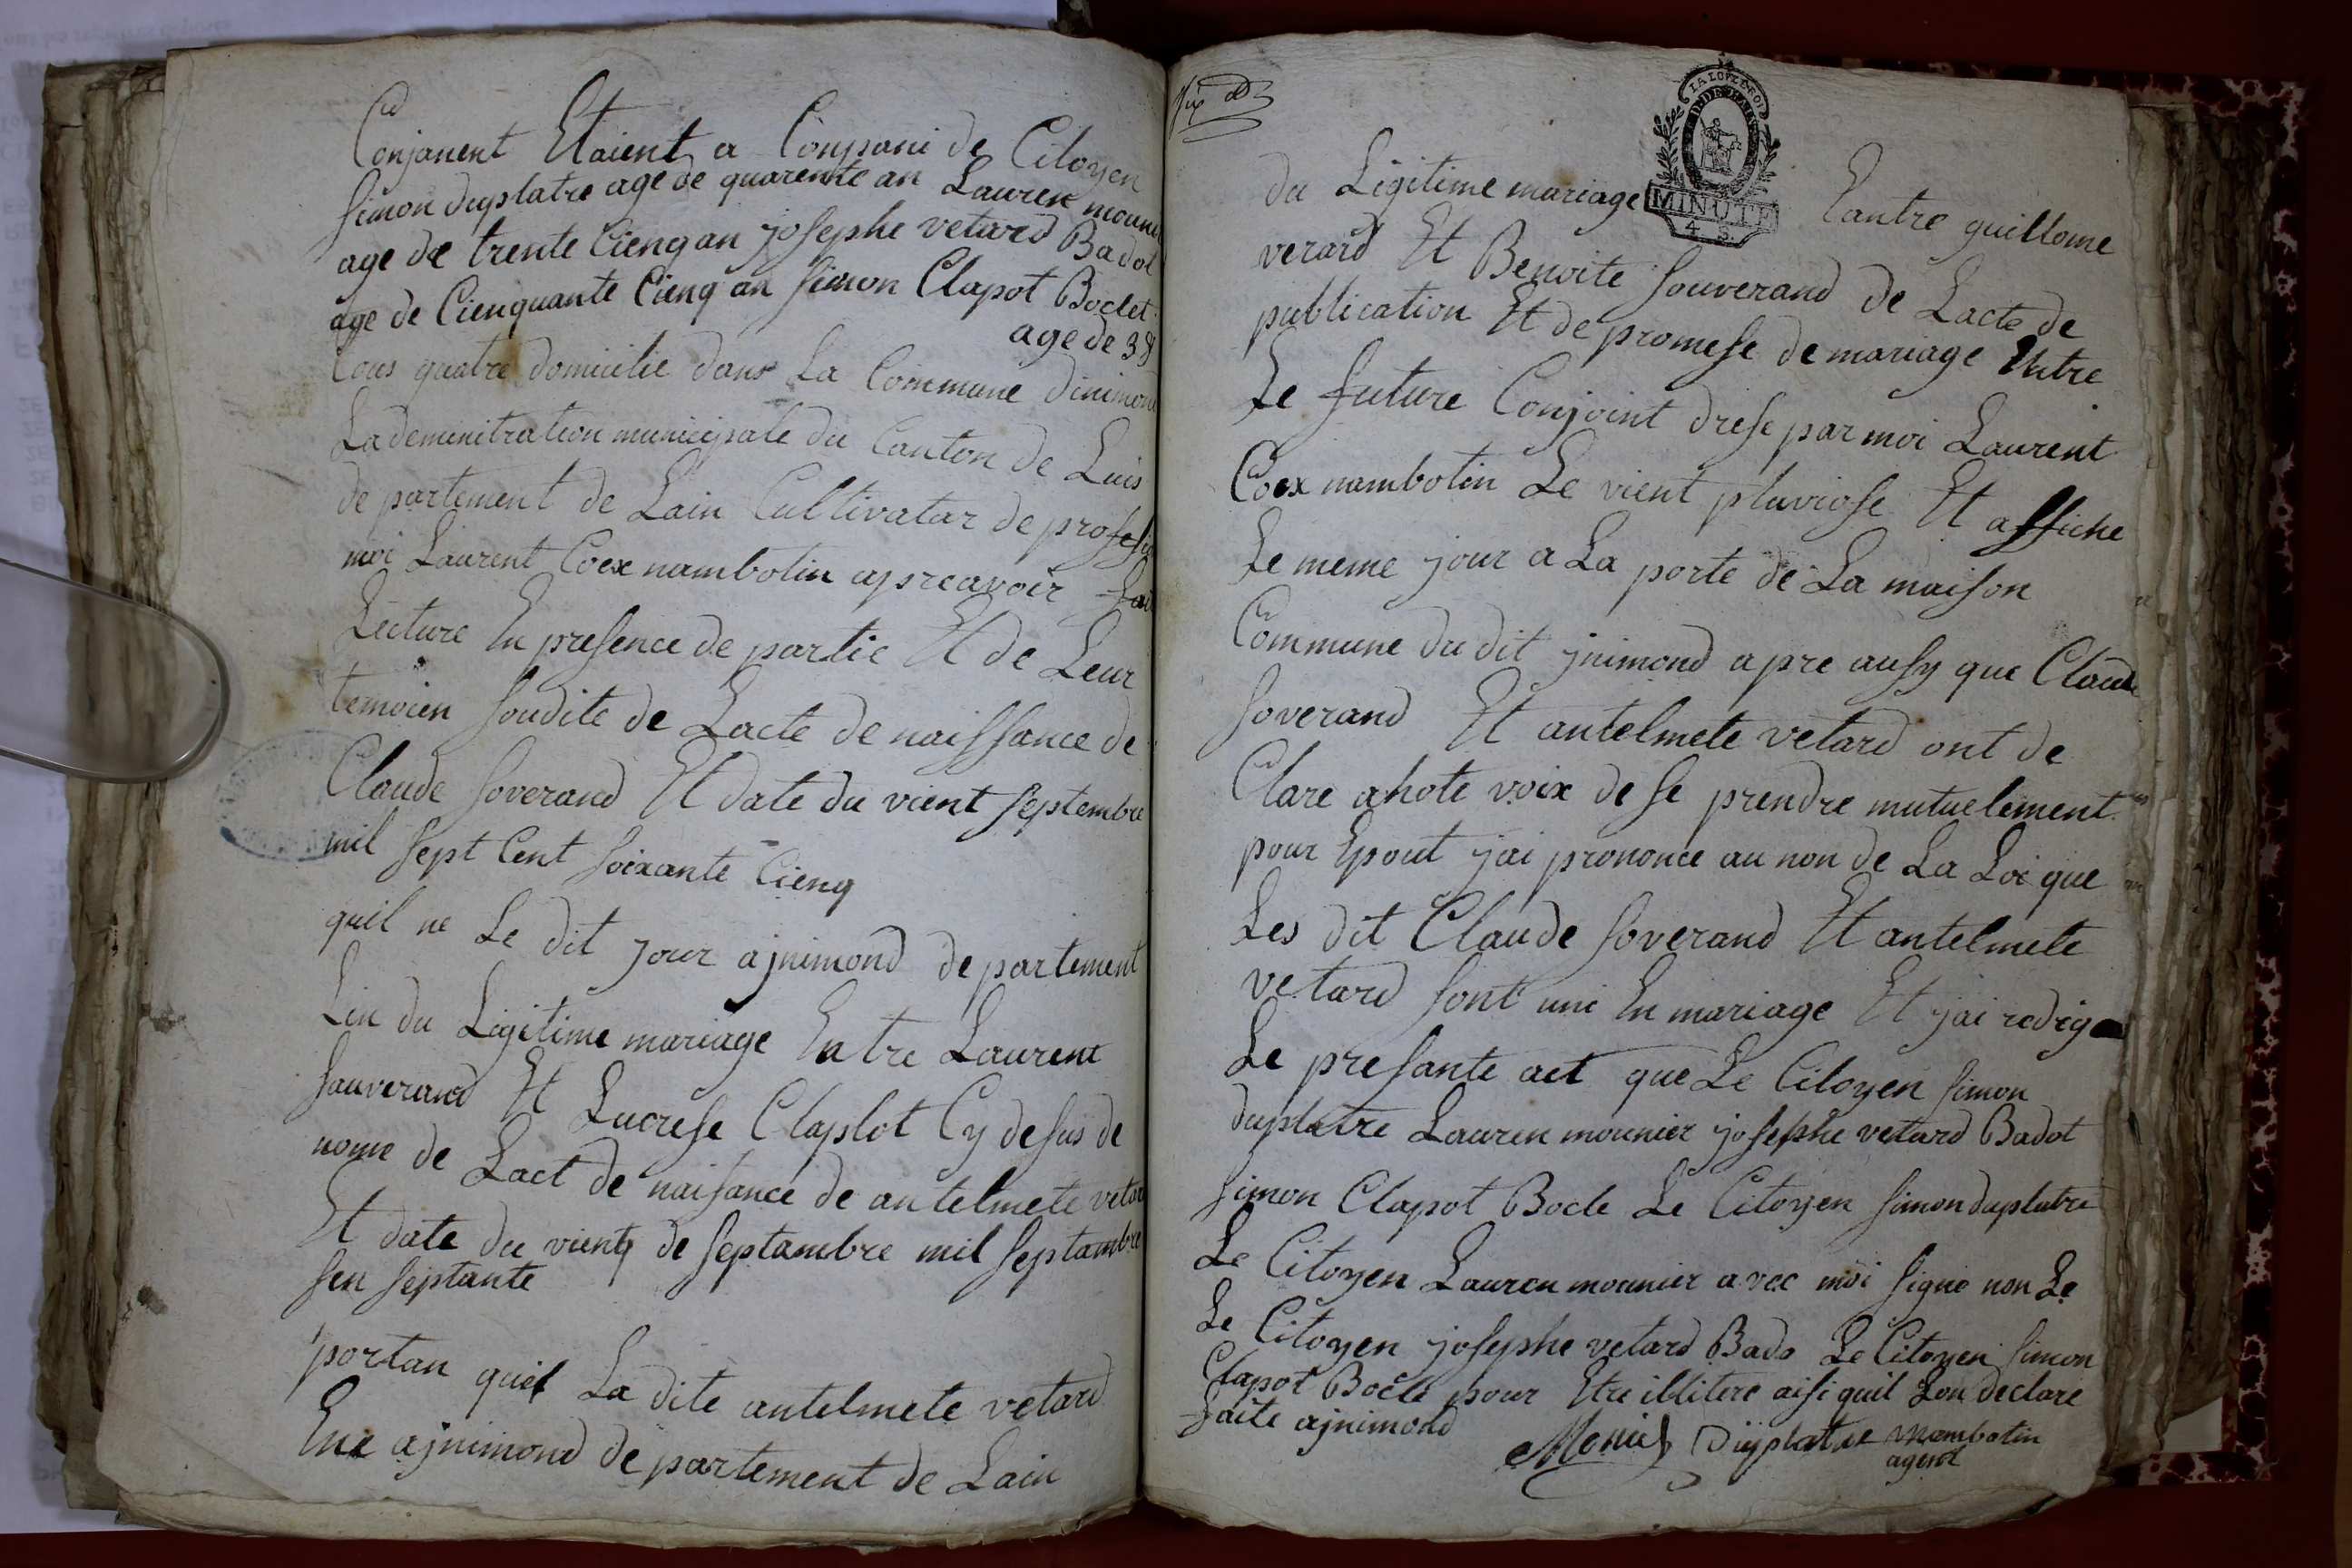 Conjanent Etaient a Conpani de Citoyen
Simon duplatre age de quarente an Lauren mouni
age de trente Cienq an josephe vetard Badot
age de Cienquante Cienq an Simon Clapot Boclet
age de 38
tous quatre domicilie dans La Commune dinimond
Lademinitration municipale du Canton de Luis
de partement de Lain Cultivatar de profesi
moi Laurent Coex nambotin apreavoir fai
Lecture En presence de partie Et de Leur
temoien Soudite de Lacte de naissance de
Claude Soverand Et date du vient Septembre
mil Sept Cent Soixante Cienq
quil ne Le dit jour ajnimond departement
Lin du Legitime mariage Entre Laurent
Sauverand Et Lucrese Claplot Cy desus de
nome de Lact de naisance de antelmete vetar
Et date du vient de Septambre mil Septambre
Sen Septante
portan quel La dite antelmete vetard
Ene ajnimond departement de Lain
du Legitime mariage Eantre guillome
LA LOI LE ROI
MINUTE
4 S.
verard Et Benoite Souverand de Lacte de
publication Et de promese de mariage Entre
Le future Conjoint drese par moi Laurent
Coex nambotin Le vient pluviose Et affiche
Le meme jour a La porte de La maison
Commune du dit jnimond apre ausy que Claude
Soverand Et antelmete vetard ont de
Clare ahote voix de se prendre mutuelement
pour Epout jai prononce au non de La Loi que
Les dit Claude Soverand Et antelmete
vetard Sont uni En mariage Et jai redige
Le presante act que Le Citoyen Simon
duplatre Lauren mounier josephe vetard Badot
Simon Clapot Bocle Le Citoyen Simon duplatre
Le Citoyen Lauren mounier avec moi Signe non Le
Le Citoyen josephe vetard Bado Le Citoyen Simon
Clapot Bocle pour Etre illitere aisi quil Lon declare
Faite ajnimond
Monier Duplatre Nambotin
agent